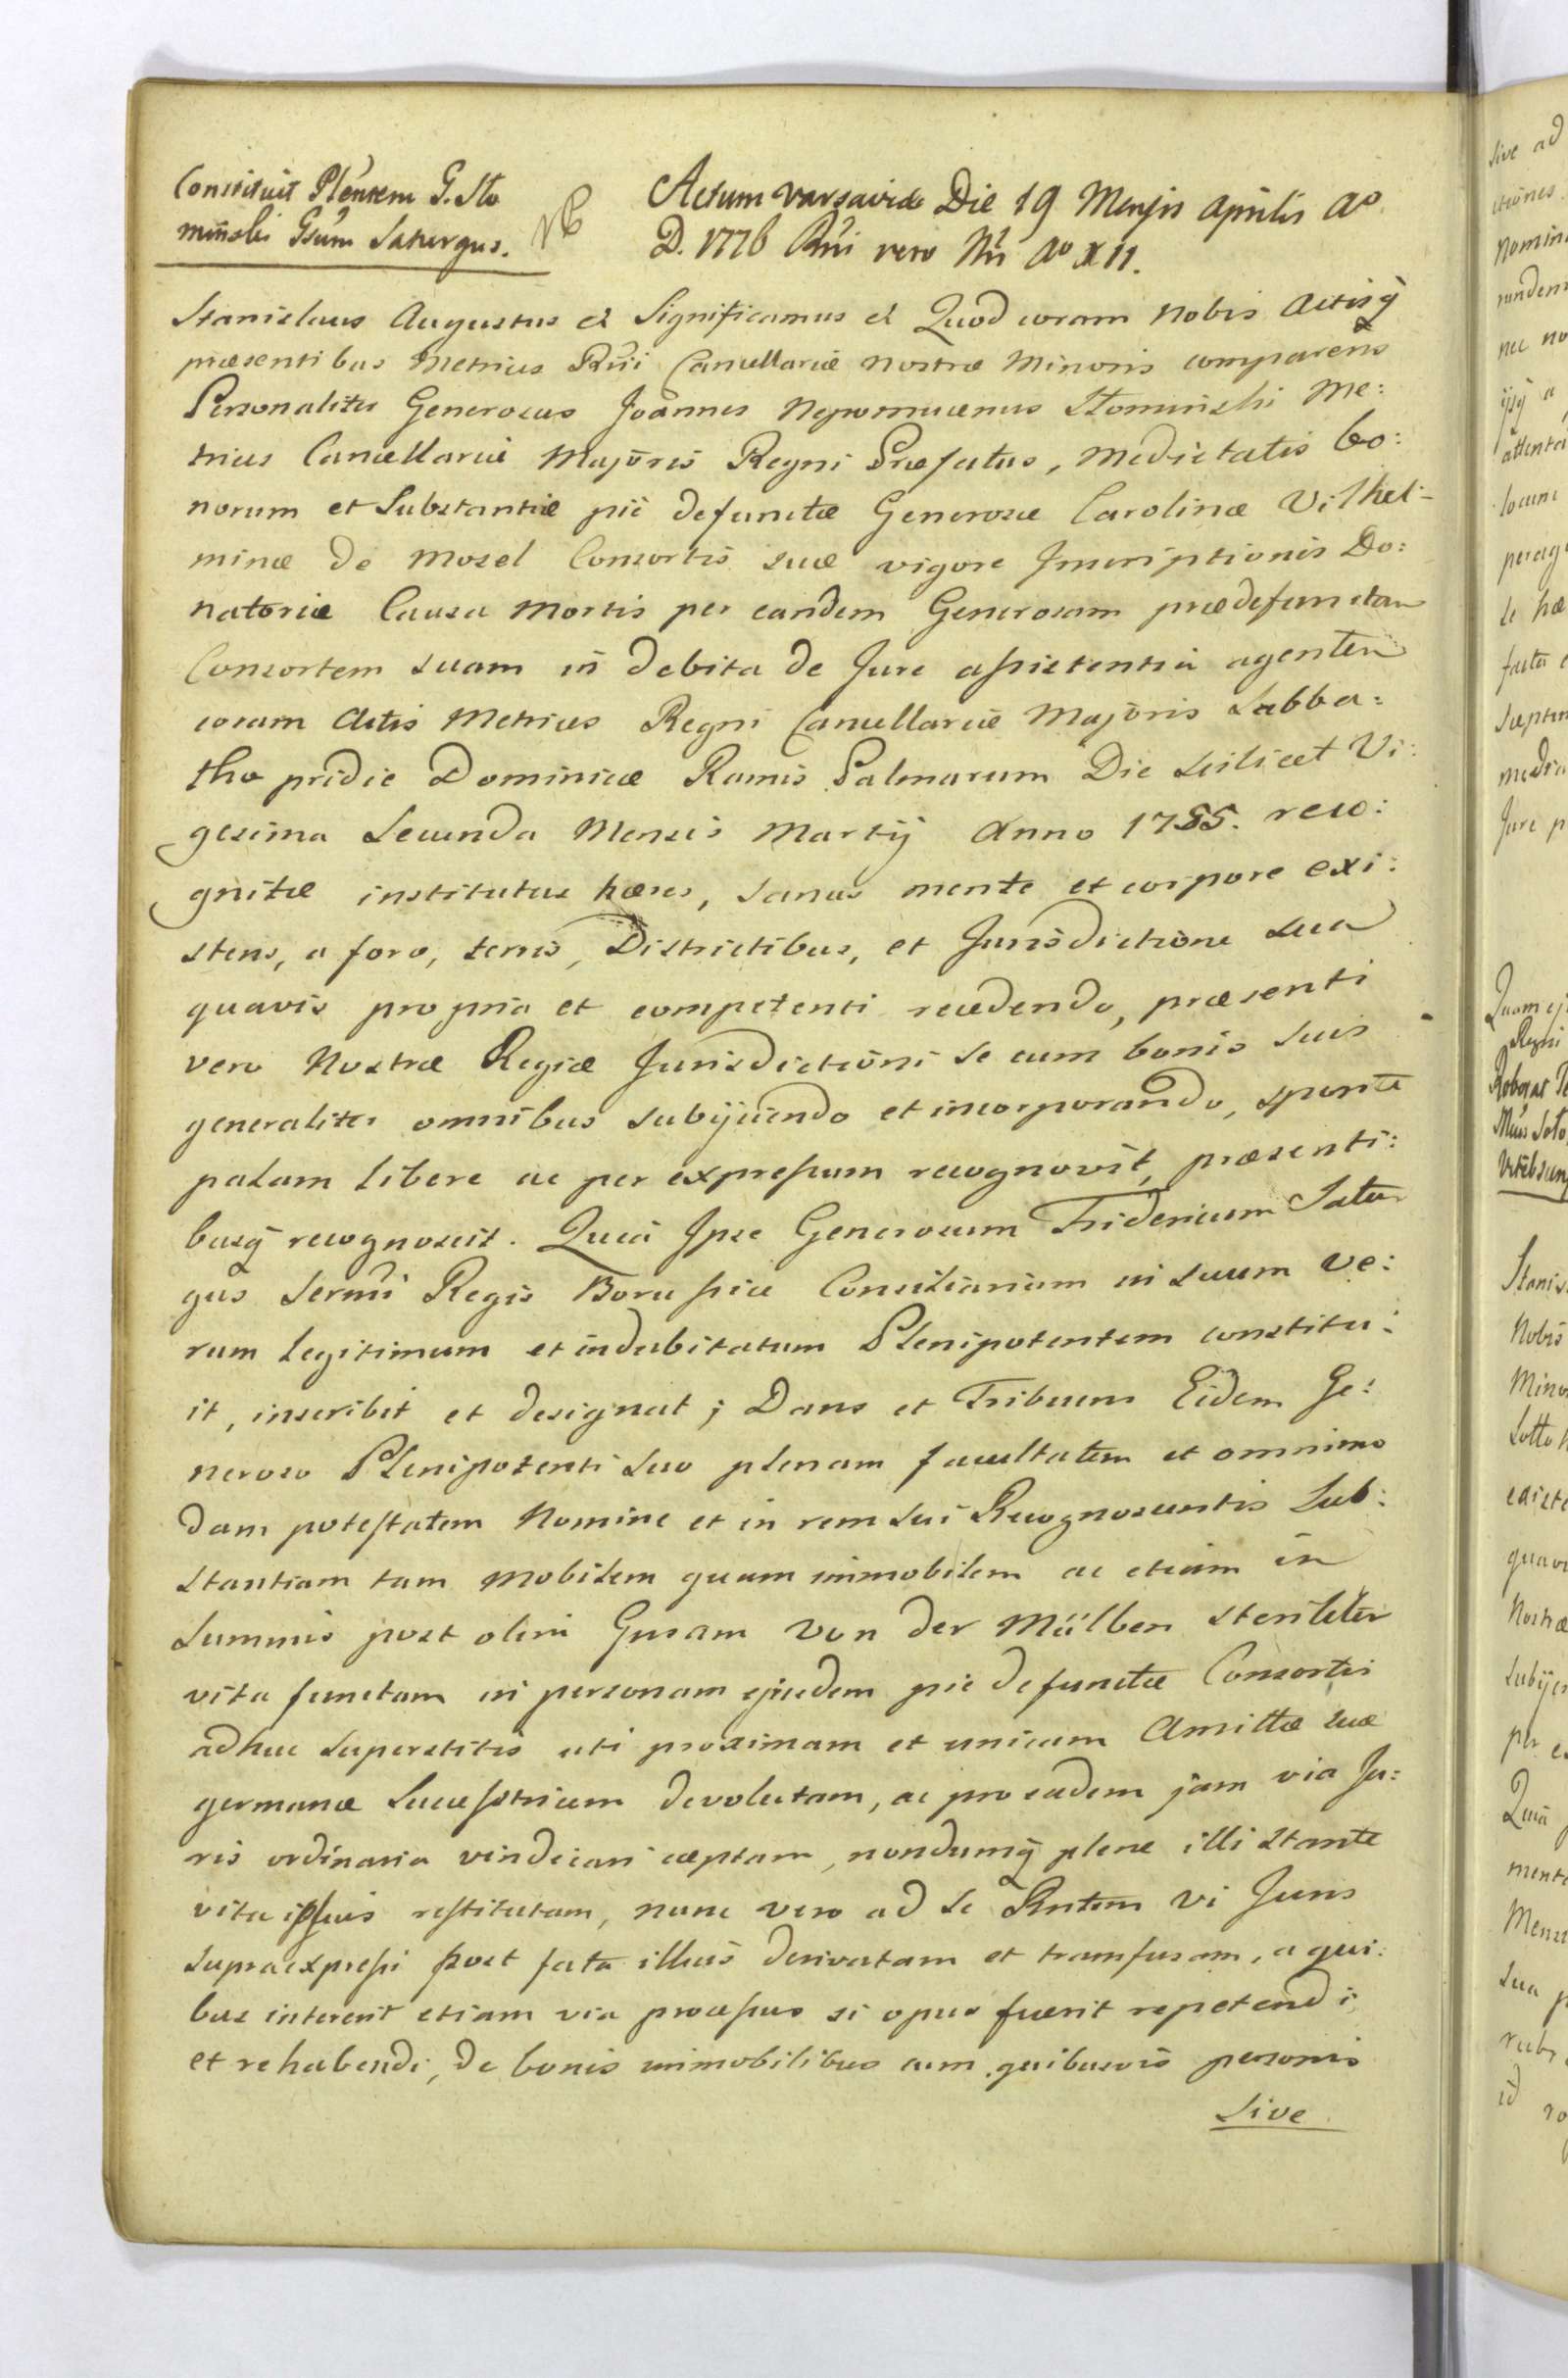 Constituit Plentem G. Sło
minski Gsum Saturgus.
NB
Actum Varsaviæ Die 19 Mensis Aprilis Ao
D. 1776 Rni vero Nri Ao XII.
Stanislaus Augustus et Significamus et Quod coram Nobis Actisq̃
præsentibus Metrices Rñi Cancellariæ Nostræ Minoris comparens
Personaliter Generosus Joannes Nepomucenus Słominski Me:
trices Cancellariæ Majoris Regni Præfectus, Medietatis bo:
norum et Substantiæ pie defunctæ Generosæ Carolinæ Vilhel:
minæ de Mosel Consortis suæ vigore Inscriptionis Do:
natoriæ Causa Mortis per eandem Generosam prædefunctam
Consortem suam in debita de Jure assistentia agentem
coram Actis Metrices Regni Cancellariæ Majoris Sabba:
tho pridie Dominicæ Ramis Palmarum Die scilicet Vi:
gesima Secunda Mensis Martij Anno 17 . reco:
gnitæ institutus hæres, sanus mente et corpore exi:
stens, a foro, terris, Districtibus, et Jurisdictione sua
quavis propria et competenti recedendo, præsenti
vero Nostræ Regiæ Jurisdictioni se cum bonis suis
generaliter omnibus subijciendo et incorporando, sponte
palam libere ac per expressum recognovit, præsenti:
busq̃ recognoscit. Quia Ipse Generosum Fridericum Satur
gus Sermi Regis Borussiæ Consiliarium in suum ve:
rum legitimum et indubitatum Plenipotentem constitu:
it, inscribit et designat; Dans et Tribuens Eidem Ge:
neroso Plenipotenti suo plenam facultatem et omnimo
dam potestatem Nomine et in rem sui Recognoscentis Sub:
stantiam tam mobilem quam immobilem ac etiam in
Summis post olim Gnsam Von der Mülben steriliter
vita functam in personam ejusdem pie defunctæ Consortis
adhuc superstitis uti proximam et unicam Amittæ suæ
germanæ Successtricem devolutam, ac pro eadem jam via Ju:
ris ordinaria vindicari cæptam, nondumq̃ plene illi stante
vita ipsius restitutam, nunc vero ad se Rntem vi Juris
supraexpressi post fata illius derivatam et transfusam, a qui:
bus intererit etiam via processus si opus fuerit repetendi
et rehabendi, de bonis immobilibus cum quibusvis personis
Sive